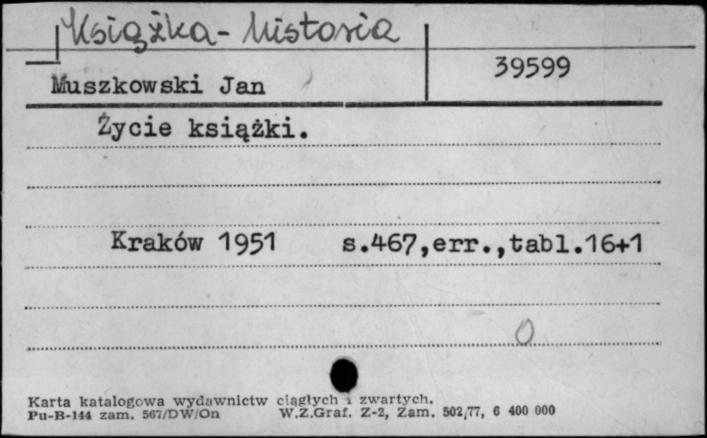 Książka - historia
39599
Muszkowski Jan
Życie książki.
Kraków 1951 s.467,err.,tabl.16+1
0
Karta katalogowa wydawnictw ciągłych i zwartych.
Pu-B-144 zam. 567/DW/On W.Z.Graf. Z-2, Zam. 502/77, 6 400 000